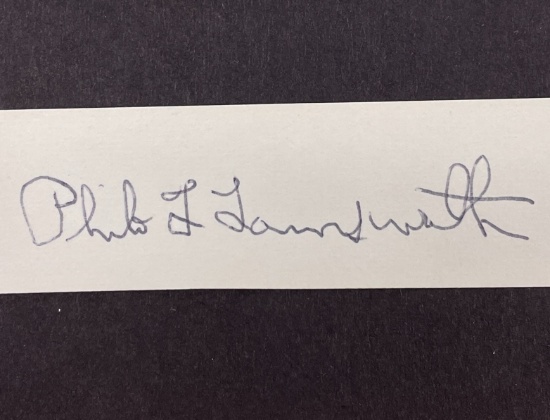 Philo T Farnsworth